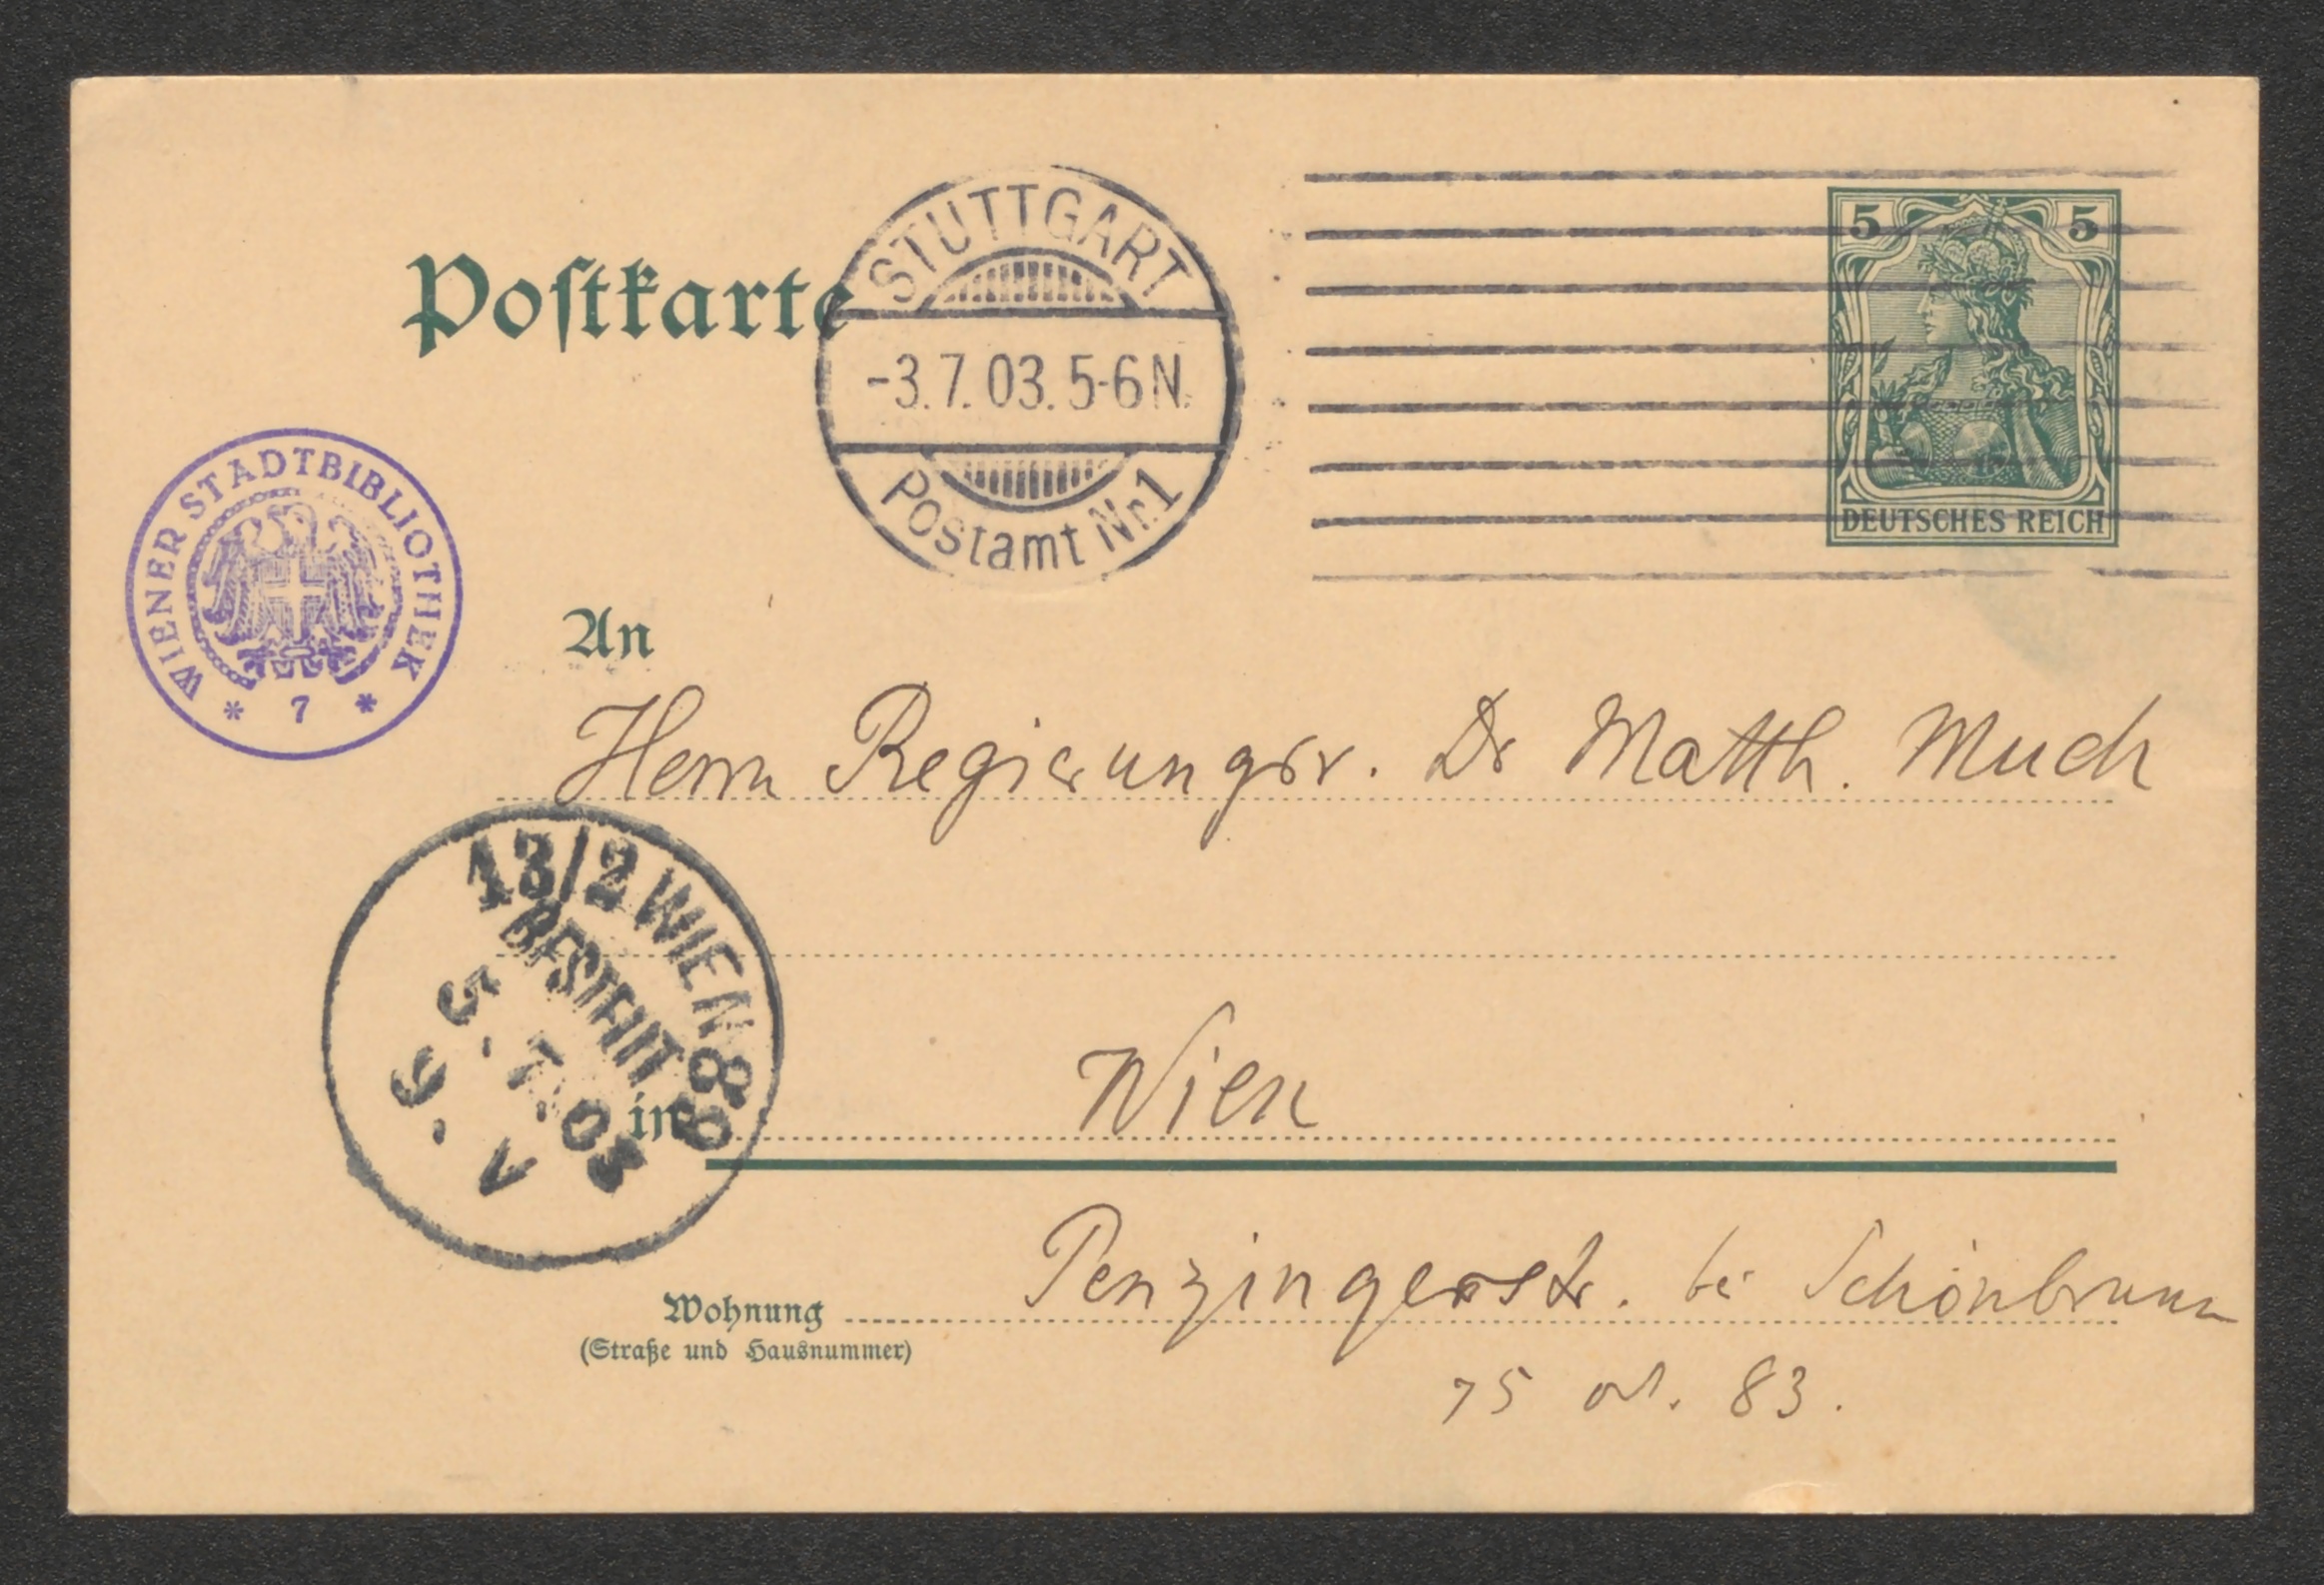 Postkarte
STUTTGART
-3.7.03.5-6N.
Postamt Nr.1
5 5
DEUTSCHES REICH
WIENER STADTBIBLIOTHEK
* 7 *
An
Herrn Regierungsr. Dr Matth. Much
13/2 WIEN 89
BESTELLT
5.7.03
9.V
in Wien
Wohnung Penzingerstr. bei Schönbrunn
(Straße und Hausnummer)
75 od. 83.